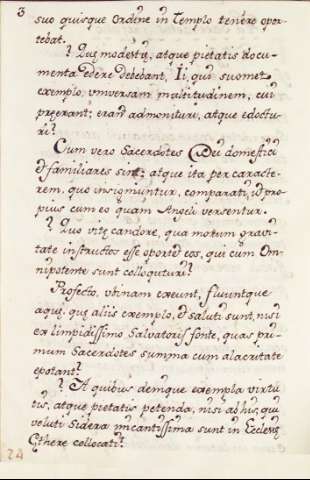 3
suo quisque Ordine in Templo tenère opor-
tebat.
? Quę modestię, atque pietatis docu-
menta edere debebant, Ii, qui suomet
exemplo, universam multitudinem, cui
pręerant; erant admonituri, atque edoctu-
ri?
Cum vero Sacerdotes Dei domestici
& familiares sint; atque ita per caracte-
rem, quo insigniuntur, comparati, & pro-
pius cum eo quàm Angeli versentur.
? Quo vitę candore, qua morum gravi-
tate instructos esse oportet eos, qui cum Om-
nipotente sunt colloquturi?
Profecto, utinam exeunt, fluuntque
aquę, quę aliis exemplo, & saluti sunt, nisi
ex limpidissimo Salvatoris fonte, quas pri-
mum Sacerdotes summa cum alacritate
epotant?
? A quibus denique exempla virtu-
tis, atque pietatis petenda, nisi ab his, qui
veluti Sidera micantissima sunt in Ecclesię
Ęthere collocati?
2A